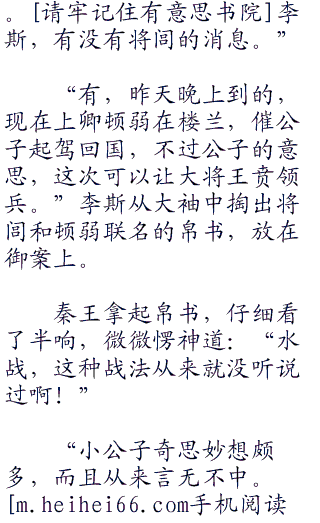 。[请牢记住有意思书院]李
斯，有没有将闾的消息。”
“有，昨天晚上到的，
现在上卿顿弱在楼兰，催公
子起驾回国，不过公子的意
思，这次可以让大将王贲领
兵。”李斯从大袖中掏出将
闾和顿弱联名的帛书，放在
御案上。
秦王拿起帛书，仔细看
了半响，微微愣神道：“水
战，这种战法从来就没听说
过啊！”
“小公子奇思妙想颇
多，而且从来言无不中。
[m.heihei66.com手机阅读